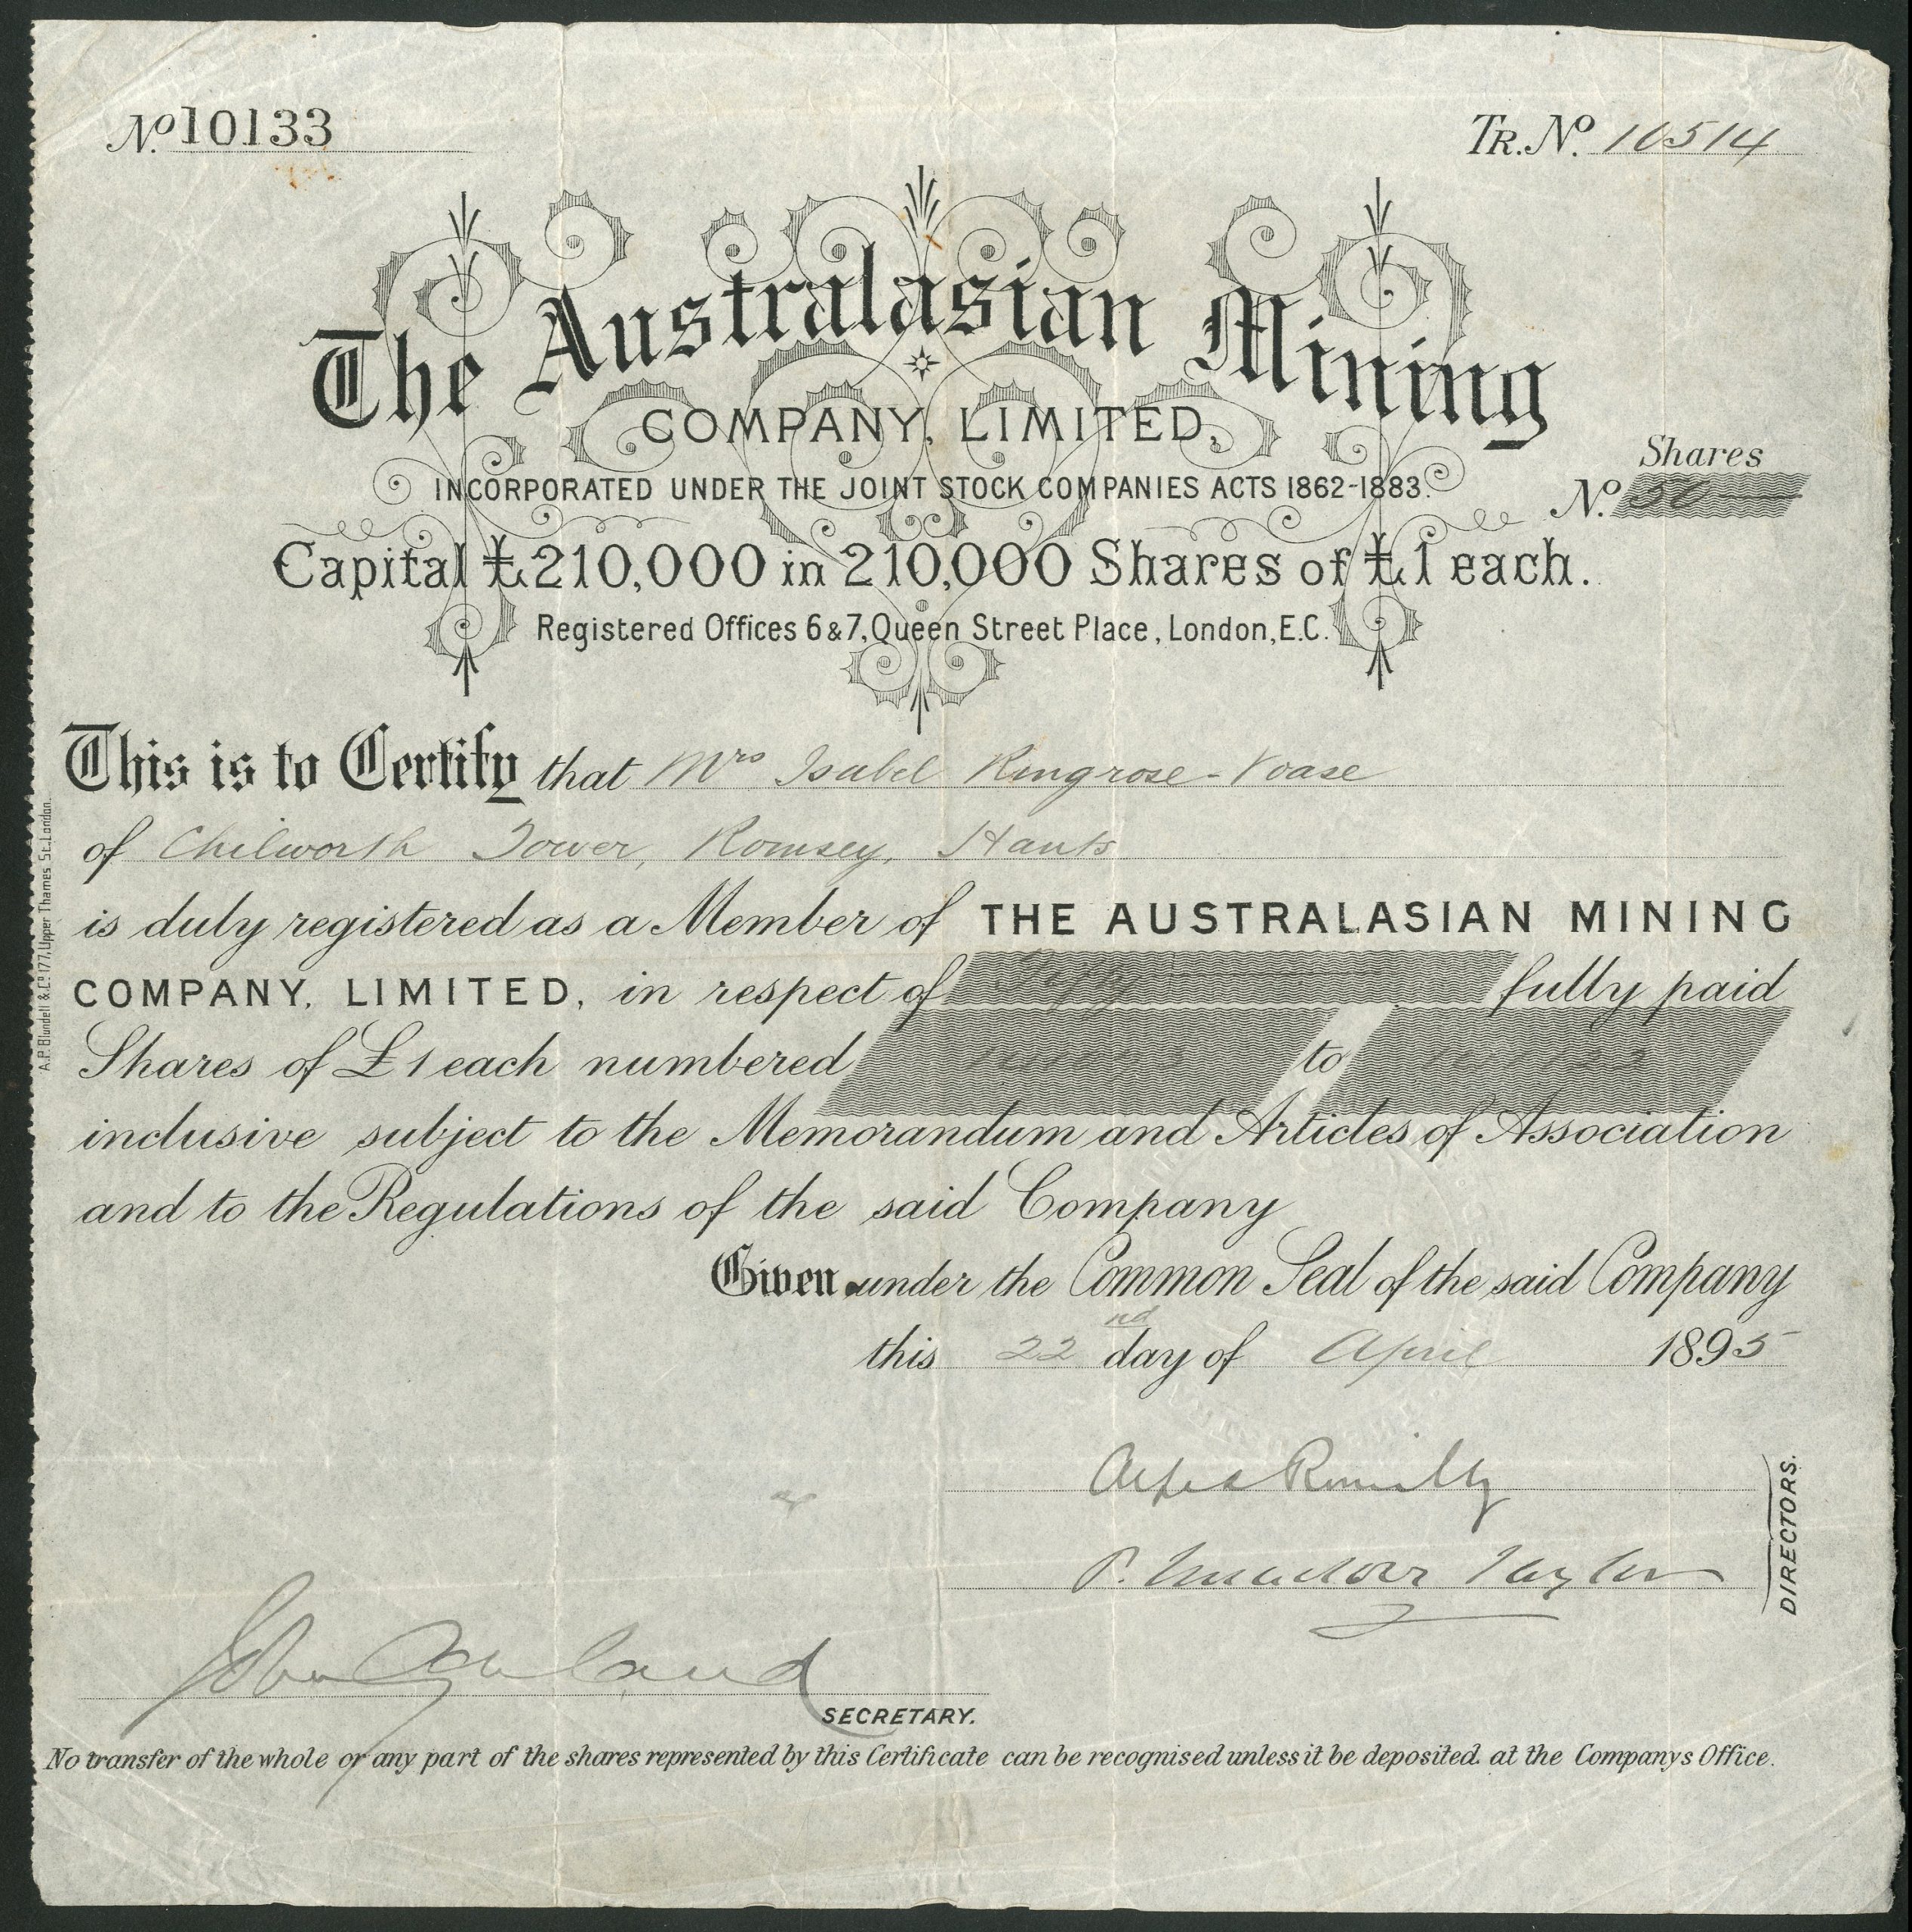 No. 10133
TR. No. 10514
The Australasian Mining
COMPANY, LIMITED,
INCORPORATED UNDER THE JOINT STOCK COMPANIES ACTS 1862-1883.
Shares
No. 50
Capital £210,000 in 210,000 Shares of £1 each.
Registered Offices 6 & 7, Queen Street Place, London, E.C.
This is to Certify that Mrs Isabel Ringrose-Voase
of Chilworth Tower, Romsey, Hants
is duly registered as a Member of THE AUSTRALASIAN MINING
COMPANY, LIMITED, in respect of Fifty fully paid
Shares of £1 each numbered to
inclusive subject to the Memorandum and Articles of Association
and to the Regulations of the said Company
Given under the Common Seal of the said Company
this 22nd day of April 1895
Alfred Romilly
P. Meadows Taylor
DIRECTORS.
John
SECRETARY.
No transfer of the whole or any part of the shares represented by this Certificate can be recognised unless it be deposited at the Companys Office.
A.P. Blundell & Co. 177, Upper Thames St. London.